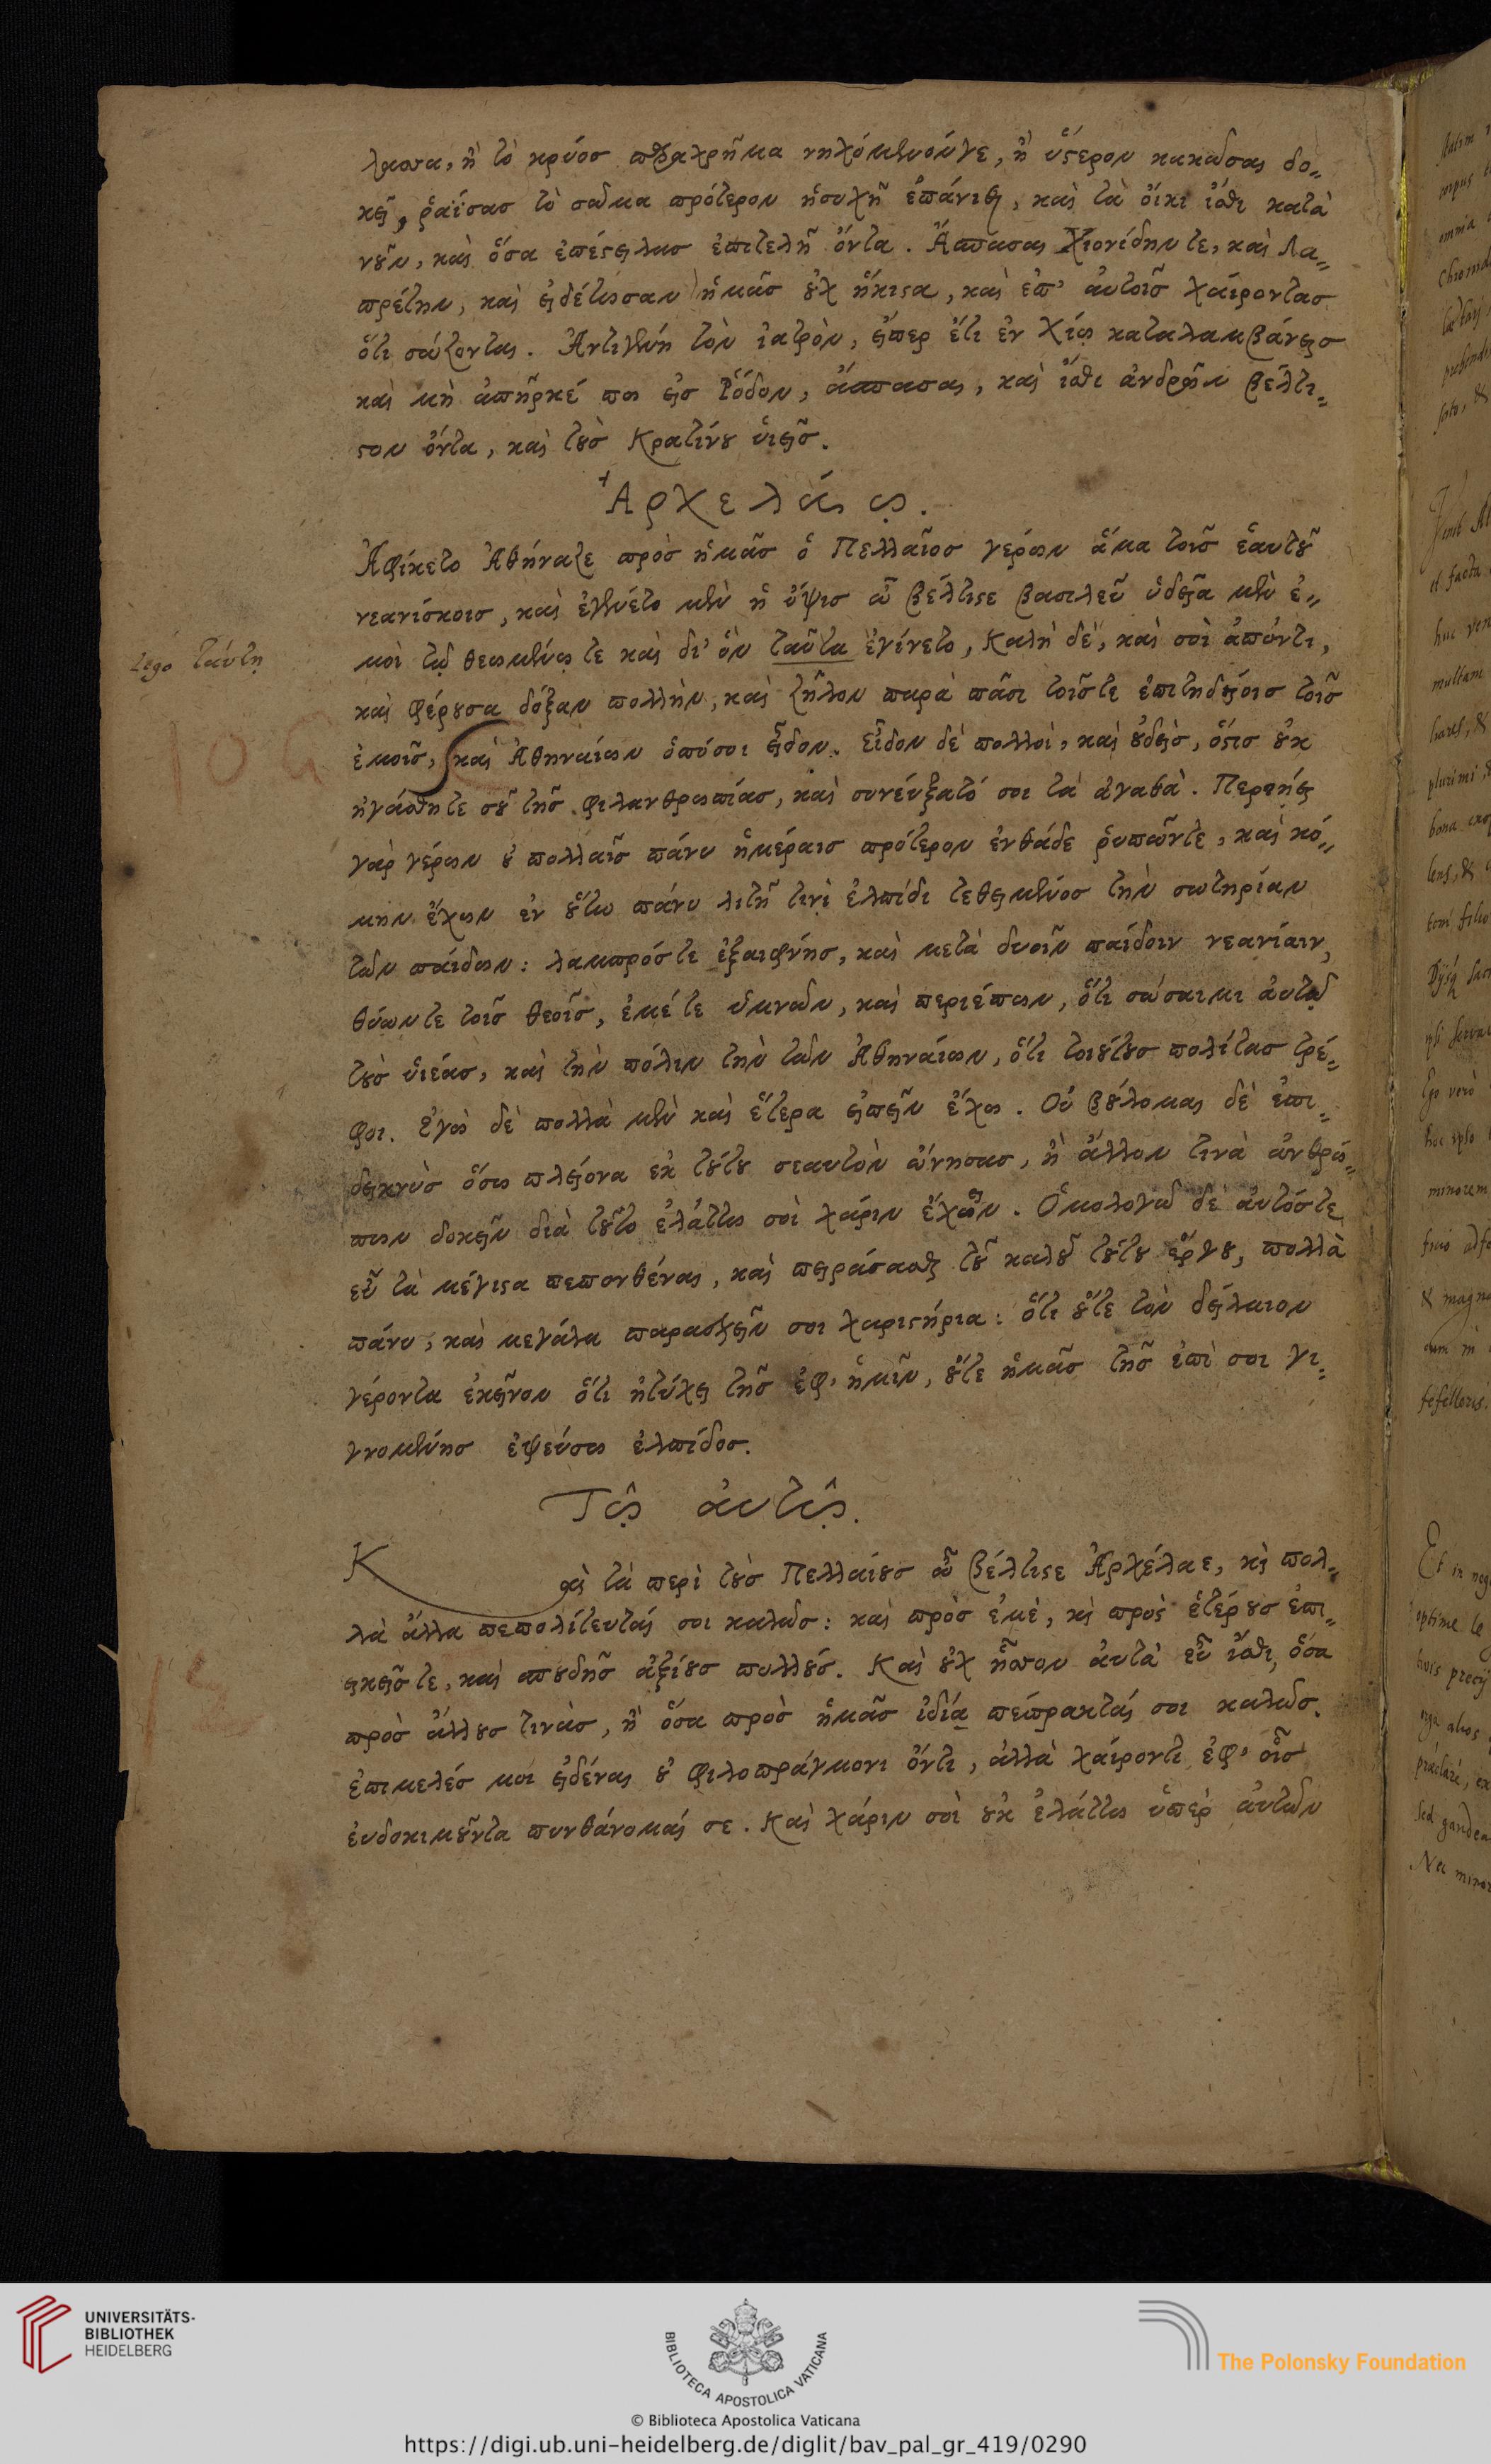 λαττα, ἢ τὸ κρύος παραχρῆμα νηχόμενον γε, ἢ ὕστερον κακῶσαι δο-
κεῖ, ῥαΐσας τὸ σῶμα πρότερον ἡσυχῆ ἐπάνιθι, καὶ τὰ οἴκι ἴσθι κατὰ
νοῦν, καὶ ὅσα ἐπέστειλας ἐπιτελῆ ὄντα. Ἄσπασαι Χιονίδην τε, καὶ Λα-
πρέτην, καὶ εἰδέτωσαν ἡμᾶς οὐχ ἥκιστα, καὶ ἐπ' αὐτοῖς χαίροντας
ὅτι σώζονται. Ἀντιγένη τὸν ἰατρὸν, εἴπερ ἔτι ἐν Χίῳ καταλαμβάνεις
καὶ μὴ ἀπῆρκέ πω εἰς Ῥόδον, ἄσπασαι, καὶ ἴσθι ἀνδρῶν βέλτι-
στον ὄντα, καὶ τοὺς Κρατίνου ὑιεῖς.
Ἀρχελάῳ.
Ἀφίκετο Ἀθήναζε πρὸς ἡμᾶς ὁ Πελλαῖος γέρων ἅμα τοῖς ἑαυτοῦ
νεανίσκοις, καὶ ἐγένετο μὲν ἡ ὄψις ὦ βέλτιστε βασιλεῦ ἡδεῖα μὲν ἐ-
μοὶ τῷ θεωμένῳ τε καὶ δι' ὃν ταῦτα ἐγίνετο, Καλὴ δὲ, καὶ σοὶ ἀπόντι,
lego ταύτῃ
καὶ φέρουσα δόξαν πολλὴν, καὶ ζῆλον παρὰ πᾶσι τοῖς τε ἐπιτηδείοις τοῖς
ἐμοῖς, καὶ Ἀθηναίων ὁπόσοι εἶδον. Εἶδον δὲ πολλοὶ, καὶ οὐδεὶς, ὅστις οὐκ
ἠγάσθη τε σοῦ τῆς φιλανθρωπίας, καὶ συνεύξατό σοι τὰ ἀγαθὰ. Περιῄει
γὰρ γέρων οὐ πολλαῖς πάνυ ἡμέραις πρότερον ἐνθάδε ῥυπῶν τε, καὶ κό-
μην ἔχων ἐν οὕτω πάνυ λιτῇ τινὶ ἐλπίδι τεθειμένος τὴν σωτηρίαν
τῶν παίδων: λαμπρός τε ἐξαιφνής, καὶ μετὰ δυοῖν παίδοιν νεανίαιν,
θύων τε τοῖς θεοῖς, ἐμέ τε ὑμνῶν, καὶ περιέπων, ὅτι σώσαιμι αὐτῷ
τοὺς ὑιέας, καὶ τὴν πόλιν τὴν τῶν Ἀθηναίων, ὅτι τοιούτους πολίτας τρέ-
φοι. Ἐγὼ δὲ πολλὰ μὲν καὶ ἕτερα εἰπεῖν ἔχω. Οὐ βούλομαι δὲ ἐπι-
δεικνὺς ὅσῳ πλείονα ἐκ τούτου σεαυτὸν ὤνησας, ἢ ἄλλον τινὰ ἀνθρώ-
πων δοκεῖν διὰ τοῦτο ἐλάττω σοὶ χάριν ἔχειν. Ὁμολογῶ δὲ αὐτός τε
εὖ τὰ μέγιστα πεπονθέναι, καὶ πειράσασθαι τοῦ καλοῦ τούτου ἔργου, πολλὰ
πάνυ, καὶ μεγάλα παρασχεῖν σοι χαριστήρια: ὅτι οὔτε τὸν δείλαιον
γέροντα ἐκεῖνον ὅτι ἠτύχει τῆς ἐφ' ἡμῖν, οὔτε ἡμᾶς τῆς ἐπὶ σοι γι-
γνομένης ἐψεύσω ἐλπίδος.
Τῷ αὐτῷ.
Καὶ τὰ περὶ τοὺς Πελλαίους ὦ βέλτιστε Ἀρχέλαε, καὶ πολ-
λὰ ἄλλα πεπολίτευταί σοι καλῶς: καὶ πρὸς ἐμὲ, καὶ πρὸς ἑτέρους ἐπι-
εικεῖς τε, καὶ σπουδῆς ἀξίους πολλούς. Καὶ οὐχ ἧττον αὐτὰ εὖ ἴσθι, ὅσα
πρὸς ἄλλους τινὰς, ἢ ὅσα πρὸς ἡμᾶς ἰδίᾳ πέπρακταί σοι καλῶς.
ἐπιμελές μοι εἰδέναι οὐ φιλοπράγμονι ὄντι, ἀλλὰ χαίροντι ἐφ' οἷς
ἐυδοκιμοῦντα πυνθάνομαί σε. Καὶ χάριν σοὶ οὐκ ἐλάττω ὑπὲρ αὐτῶν
UNIVERSITÄTS-
BIBLIOTHEK
HEIDELBERG
BIBLIOTECA APOSTOLICA VATICANA
The Polonsky Foundation
© Biblioteca Apostolica Vaticana
https://digi.ub.uni-heidelberg.de/diglit/bav_pal_gr_419/0290